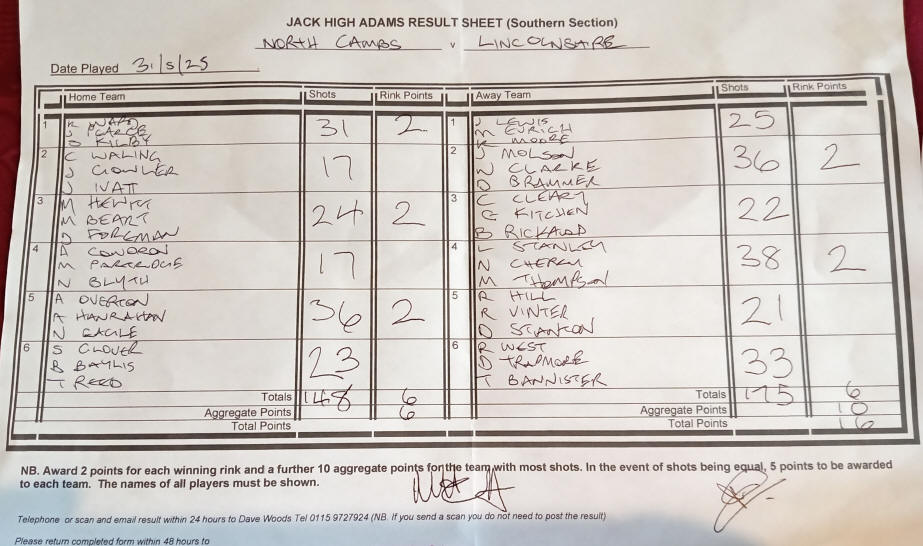 JACK HIGH ADAMS RESULT SHEET (Southern Section)
NORTH CAMBS v LINCOLNSHIRE
Date Played 31/5/25
Home Team Shots Rink Points Away Team Shots Rink Points
1 R WARD 31 2 1 J LEWIS 25
J PEARCE M EURICH
D KILBY K MOORE
2 C WALING 17 2 J MOLSON 36 2
J GOWLER W CLARKE
J IVATT D BRAMMER
3 M HEWITT 24 2 3 C CLEARY 22
M BEART G KITCHEN
D FOREMAN B RICKALDD
4 A CONDRON 17 4 L STANLEY 38 2
M PARTRIDGE N CHERRY
N BLYTH M THOMPSON
5 A OVERTON 36 2 5 R HILL 21
A HANRAHAN R VINTER
N EAGLE D STANTON
6 S CLOVER 23 6 R WEST 33
B BAYLIS D TRAPMORE
T REED T BANNISTER
Totals 148 6 Totals 175 6
Aggregate Points 6 Aggregate Points 10
Total Points Total Points 16
NB. Award 2 points for each winning rink and a further 10 aggregate points for the team with most shots. In the event of shots being equal, 5 points to be awarded
to each team. The names of all players must be shown.
Telephone or scan and email result within 24 hours to Dave Woods Tel 0115 9727924 (NB. If you send a scan you do not need to post the result)
Please return completed form within 48 hours to